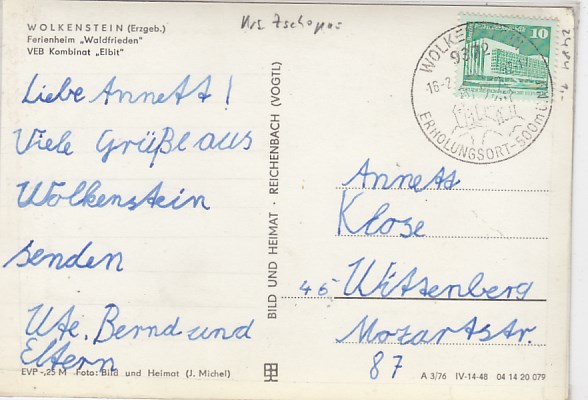 WOLKENSTEIN (Erzgeb.)
Ferienheim „Waldfrieden"
VEB Kombinat „Elbit"
Krs. Zschopau
Liebe Annett!
Viele Grüße aus
Wolkenstein
senden
Ute, Bernd und
Eltern
EVP -,25 M Foto: Bild und Heimat (J. Michel)
BILD UND HEIMAT · REICHENBACH (VOGTL)
10
WOLKENSTEIN
9372
ERHOLUNGSORT-500m ü.NN
Annett
Klose
45- Wittenberg
Mozartstr.
87
A 3/76 IV-14-48 04 14 20 079